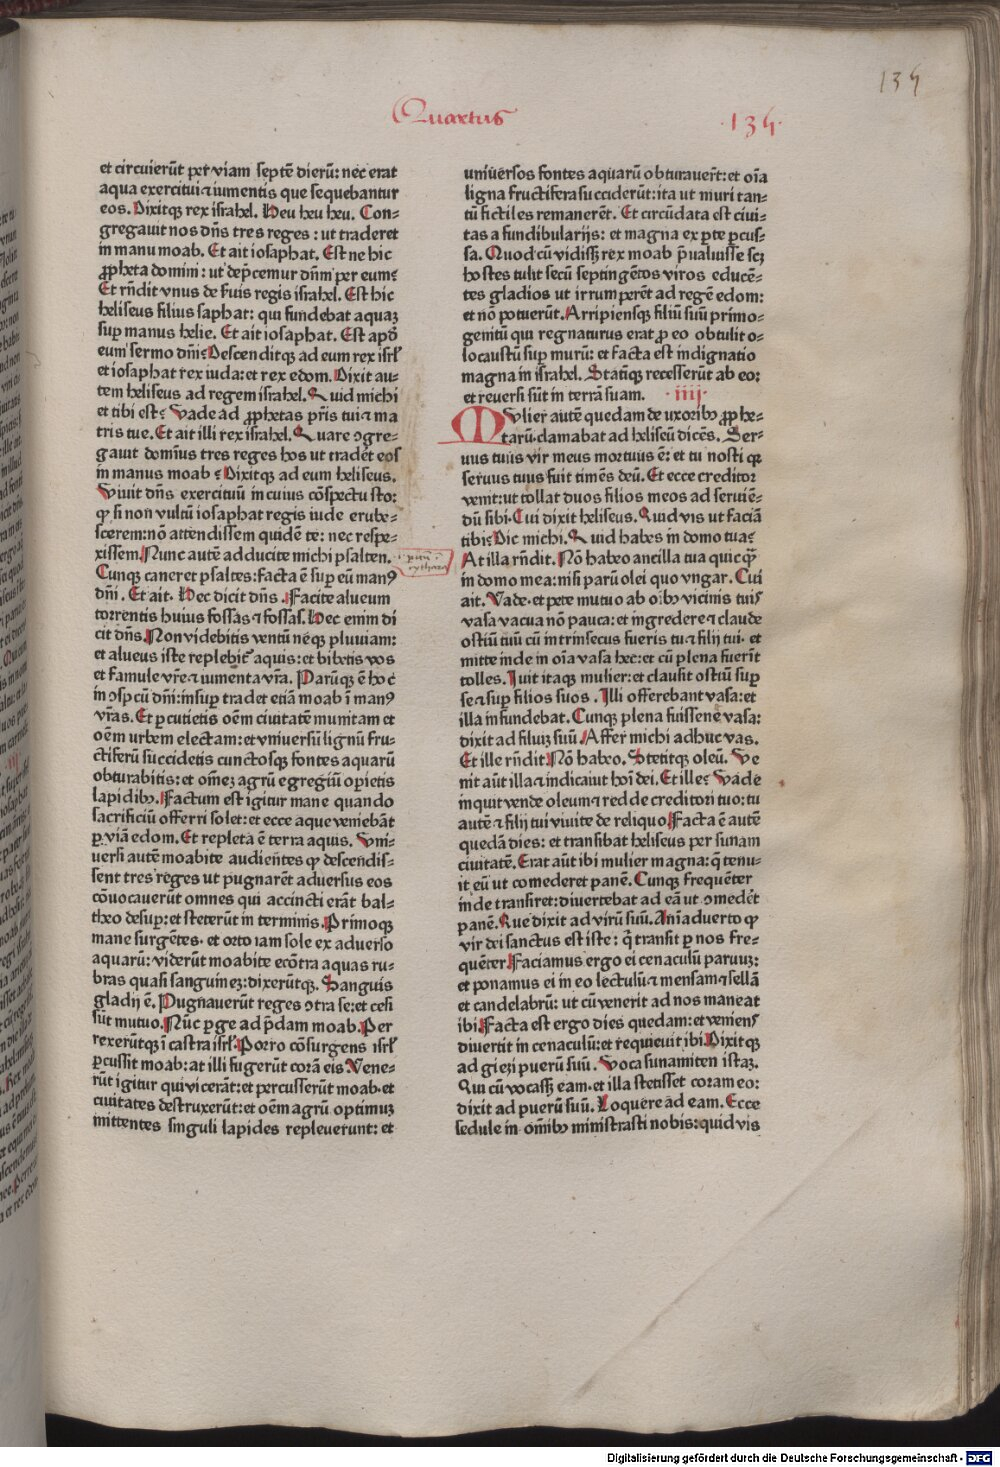 135
Quartus
·135·
et circuierūt per viam septē dierū: nec erat
aqua exercitui ⁊ iumentis que sequebantur
eos. Dixitqꝫ rex israhel. Heu heu heu. Con⸗
gregauit nos dn̄s tres reges : ut traderet
in manu moab. Et ait iosaphat. Est ne hic
ꝓpheta domini : ut dep̄cemur dn̄m per eum?
Et rn̄dit vnus de s̄uis regis israhel. Est hic
heliseus filius saphat: qui fundebat aquaꝫ
suꝑ manus helie. Et ait iosaphat. Est apd̄
eum sermo dn̄i? Descenditqꝫ ad eum rex isrl̄
et iosaphat rex iuda: et rex edom. Dixit au⸗
tem heliseus ad regem israhel. Quid michi
et tibi est? Vade ad ꝓphetas pr̄is tui ⁊ ma
tris tue. Et ait illi rex israhel. Quare ↄgre⸗
gauit domīnus tres reges hos ut tradet eos
in manus moab? Dixitqꝫ ad eum heliseus.
Viuit dn̄s exercituū in cuius cōspectu sto:
ꝙ si non vultū iosaphat regis iude erube⸗
scerem: nō attendissem quidē te: nec respe⸗
xissem. Nunc autē adducite michi psalten.
Cunqꝫ caneret psaltes: facta ē suꝑ eū manꝰ
dn̄i. Et ait. Hec dicit dn̄s. Facite alueum
torrentis huius fossas ⁊ fossas. Hec enim di
cit dn̄s. Non videbitis ventū neqꝫ pluuiam:
et alueus iste replebit᷑ aquis: et bibetis vos
et famule vr̄e ⁊ iumenta vr̄a. Parūqꝫ ē hoc
in ↄspcū dn̄i: insuꝑ tradet etiā moab ī manꝰ
vr̄as. Et ꝑcutietis oēm ciuitatē munitam et
oēm urbem electam: et vniuersū lignū fru⸗
ctiferū succidetis cunctosqꝫ fontes aquarū
obturabitis: et om̄eꝫ agrū egregiū oꝑietis
lapidibꝫ. Factum est igitur mane quando
sacrificiū offerri solet: et ecce aque veniebāt
ꝑ viā edom. Et repleta ē terra aquis. Vni⸗
uersi autē moabite audientes ꝙ descendis⸗
sent tres reges ut pugnarēt aduersus eos
cōuocauerūt omnes qui accincti erāt bal⸗
theo desuꝑ: et steterūt in terminis. Primoqꝫ
mane surgētes. et orto iam sole ex aduerso
aquarū: viderūt moabite ecōtra aquas ru⸗
bras quasi sanguineꝫ: dixerūtqꝫ. Sanguis
gladij ē. Pugnauerūt reges ↄtra se: et cesi
sūt mutuo. Nūc ꝑge ad p̄dam moab. Per
rexerūtqꝫ ī castra isrl̄. Porro cōsurgens isrl̄
ꝑcussit moab: at illi fugerūt corā eis. Vene⸗
rūt igitur qui vicerāt: et percusserūt moab. et
ciuitates destruxerūt: et oēm agrū optimuꝫ
mittentes singuli lapides repleuerunt: et
cythara
uniuersos fontes aquarū obturauerūt: et oīa
ligna fructifera succiderūt: ita ut muri tan⸗
tū fictiles remanerēt. Et circūdata est ciui⸗
tas a fundibularijs: et magna ex ꝑte ꝑcus⸗
sa. Quod cū vidissꝫ rex moab p̄ualuisse scꝫ
hostes tulit secū septingētos viros educē⸗
tes gladios ut irrumꝑēt ad regē edom:
et nō potuerūt. Arripiensqꝫ filiū suū primo⸗
genitū qui regnaturus erat ꝓ eo obtulit o⸗
locaustū suꝑ murū: et facta est indignatio
magna in israhel. Statīqꝫ recesserūt ab eo:
et reuersi sūt in terrā suam. ·iiij·
Mvlier autē quedam de uxoribꝫ ꝓphe⸗
tarū. clamabat ad heliseū dicēs. Ser⸗
uus tuus vir meus mortuus ē: et tu nosti qꝛ
seruus tuus fuit timēs deū. Et ecce creditor
venit: ut tollat duos filios meos ad seruiē⸗
dū sibi. Cui dixit heliseus. Quid vis ut faciā
tibi? Dic michi. Quid habes in domo tua?
At illa rn̄dit. Nō habeo ancilla tua quicꝙ̄
in domo mea: nisi parū olei quo vngar. Cui
ait. Vade. et pete mutuo ab oībꝫ vicinis tuis
vasa vacua nō pauca: et ingredere ⁊ claude
ostiū tuū cū intrinsecus fueris tu ⁊ filij tui. et
mitte inde in oīa vasa hec: et cū plena fuerīt
tolles. Iuit itaqꝫ mulier: et clausit ostiū suꝑ
se ⁊ suꝑ filios suos . Illi offerebant vasa: et
illa infundebat. Cunqꝫ plena fuissent vasa:
dixit ad filiuꝫ suū. Affer michi adhuc vas.
Et ille rn̄dit. Nō habeo. Stetitqꝫ oleū. Ve
nit aūt illa ⁊ indicauit hoī dei. Et ille? Vade
inquit vende oleum ⁊ redde creditori tuo: tu
autē ⁊ filij tui viuite de reliquo. Facta ē autē
quedā dies: et transibat heliseus per sunam
ciuitatē. Erat aūt ibi mulier magna: q̄ tenu⸗
it eū ut comederet panē. Cunqꝫ frequēter
inde transiret: diuertebat ad eā ut ↄmedēt
panē. Que dixit ad virū suū. Aīaduerto ꝙ
vir dei sanctus est iste : q̄ transit ꝑ nos fre⸗
quēter. Faciamus ergo ei cenaculū paruuꝫ:
et ponamus ei in eo lectulū ⁊ mensam ⁊ sellā
et candelabrū: ut cū venerit ad nos maneat
ibi. Facta est ergo dies quedam: et veniens
diuertit in cenaculū: et requieuit ibi. Dixitqꝫ
ad giezi puerū suū. Voca sunamiten istaꝫ.
Qui cū vocassꝫ eam. et illa stetisset coram eo:
dixit ad puerū suū. Loquere ad eam. Ecce
sedule in om̄ibꝫ ministrasti nobis: quid vis
Digitalisierung gefördert durch die Deutsche Forschungsgemeinschaft - DFG